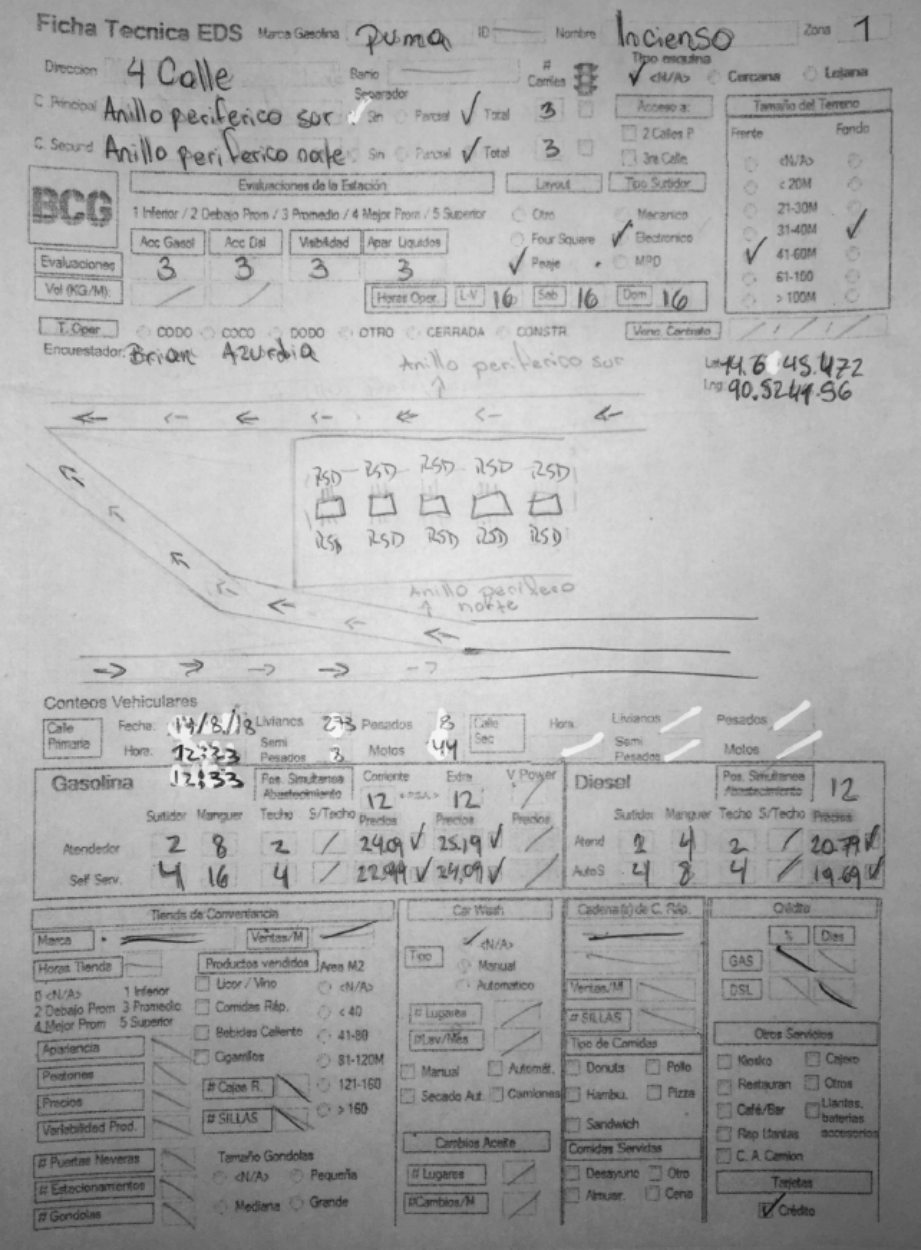 Ficha Tecnica EDS Marca Gasolina Puma ID Nombre Incienso Zona 1
Direccion 4 Calle Barrio # Carriles Tipo esquina <N/A> Cercana Lejana
Separador
C Principal Anillo periferico sur Sin Parcial Total 3 Acceso a: Tamaño del Terreno
2 Calles P Frente Fondo
C. Secund Anillo periferico norte Sin Parcial Total 3 3ra Calle <N/A>
BCG Evaluaciones de la Estación Layout Tipo Surtidor < 20M
1 Inferior / 2 Debajo Prom / 3 Promedio / 4 Mejor Prom / 5 Superior Otro Mecanico 21-30M
Acc Gasol Acc Dsl Visibilidad Apar Liquidos Four Square Electronico 31-40M
Evaluaciones 3 3 3 3 Peaje MPD 41-60M
61-100
Vol (KG/M): Horas Oper. L-V 16 Sab 16 Dom 16 > 100M
T. Oper CODO COCO DODO OTRO CERRADA CONSTR. Venc. Contrato
Encuestador: Brian Azurdia
Lat 14.6 45.472
Lng: 90.5244.56
Anillo periferico sur
RSD RSD RSD RSD RSD
RSD RSD RSD RSD RSD
Anillo perifero
norte
Conteos Vehiculares
Calle Primaria Fecha: 14/8/18 Livianos 273 Pesados 8 Calle Sec Hora: Livianos Pesados
Hora: 12:23 Semi Pesados 3 Motos 44 Semi Pesados Motos
12:33
Gasolina Pos. Simultanea Abastecimiento Corriente 12 Extra 12 V Power Diesel Pos. Simultanea Abastecimiento 12
Surtidor Manguer Techo S/Techo Precios Precios Precios Surtidor Manguer Techo S/Techo Precios
Atendedor 2 8 2 24.09 25.19 Atend 2 4 2 20.79
Self Serv. 4 16 4 22.99 24.09 AutoS 4 8 4 19.69
Tienda de Conveniencia Car Wash Cadena(s) de C. Ráp. Crédito
Marca Ventas/M <N/A> % Dias
Horas Tienda Productos vendidos Area M2 Tipo Manual GAS
0 <N/A> 1 Inferior Licor / Vino <N/A> Automatico Ventas/M DSL
2 Debajo Prom 3 Promedio Comidas Ráp. < 40 # Lugares # SILLAS
4 Mejor Prom 5 Superior Bebidas Caliente 41-80 #Lav/Mes Tipo de Comidas Otros Servicios
Apariencia Cigarrillos 81-120M Manual Automát. Donuts Pollo Kiosko Cajero
Peatones # Cajas R. 121-160 Secado Aut. Camiones Hambu. Pizza Restauran Otros
Precios # SILLAS > 160 Sandwich Café/Bar Llantas, baterias accesorios
Variabilidad Prod. Cambios Aceite Comidas Servidas Rep Llantas
# Puertas Neveras Tamaño Gondolas # Lugares Desayuno Otro C. A. Camion
# Estacionamientos <N/A> Pequeña #Cambios/M Almuer. Cena Tarjetas
# Gondolas Mediana Grande Crédito